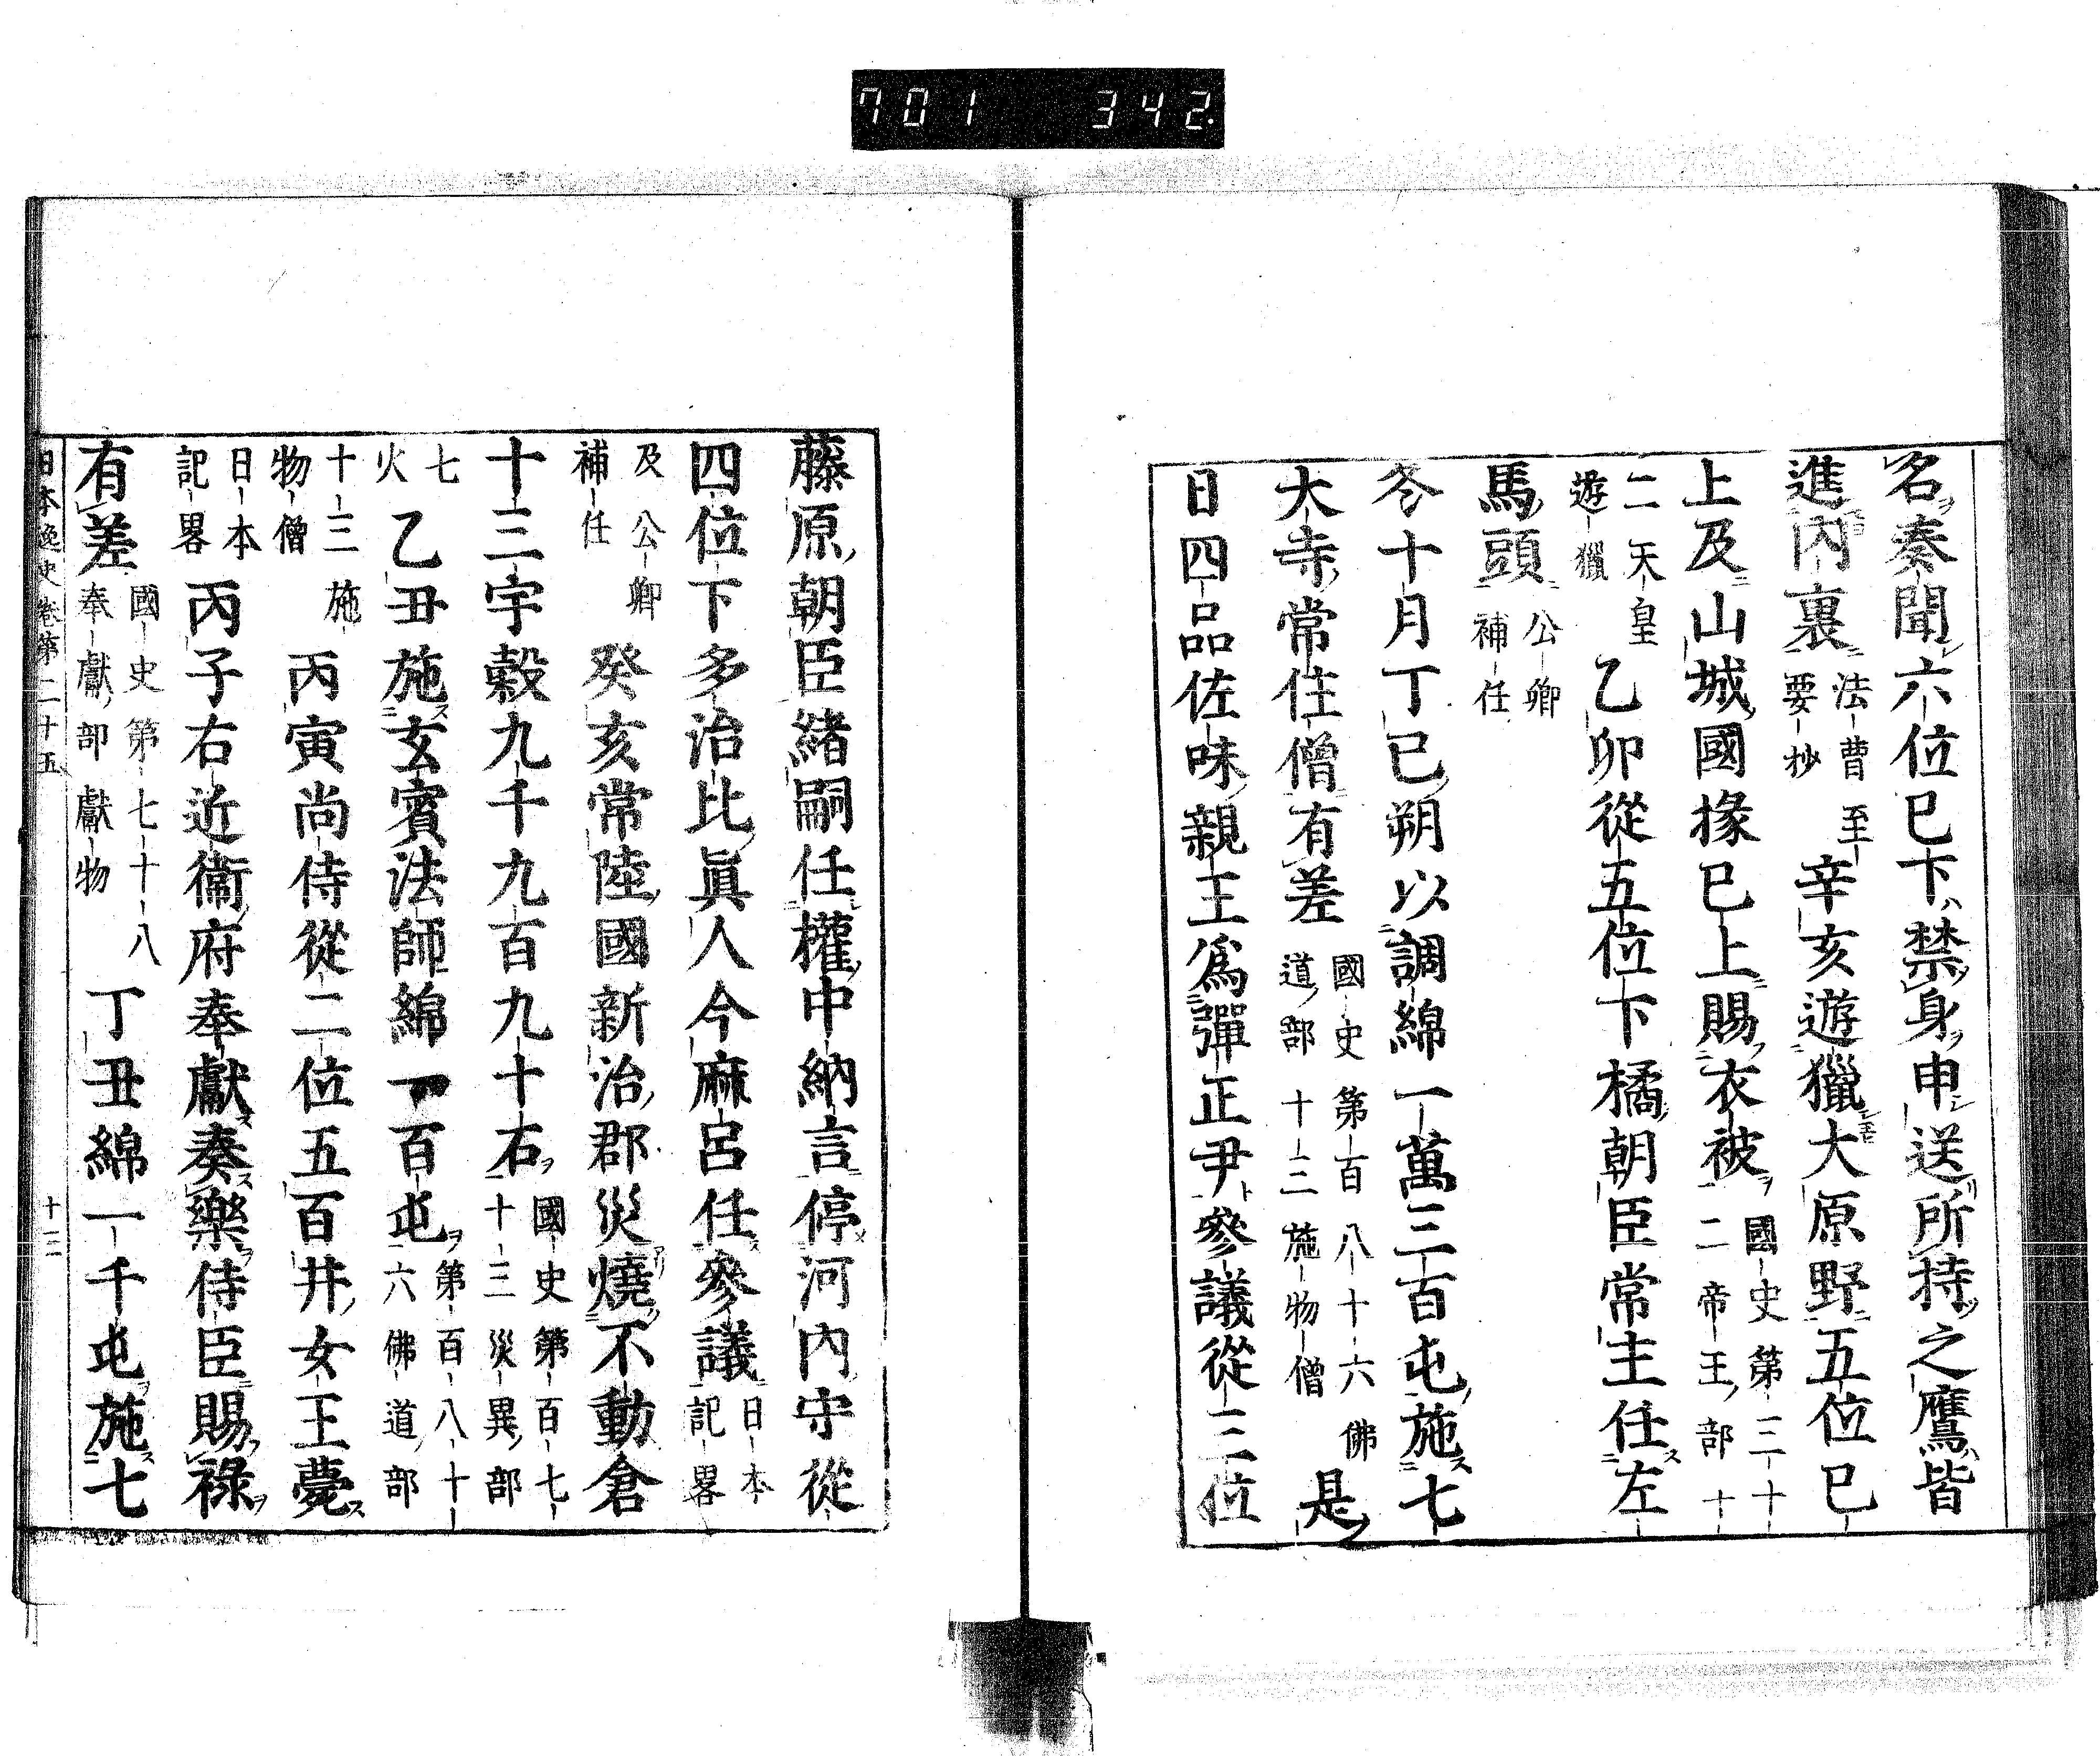 701 342.
名奏聞六位巳下禁身申送所持之鷹皆
進內裏 法曹至要抄 辛亥遊獵大原野五位巳
上及山城國掾巳上賜衣被 國史第三十二帝王部十
二天皇遊獵 乙卯從五位下橘朝臣常主任左
馬頭 公卿補任
冬十月丁巳朔以調綿一萬三百屯施七
大寺常住僧有差 國史第百八十六佛道部十三施物僧 是
日四品佐味親王爲彈正尹參議從三位
藤原朝臣緖嗣任權中納言停河內守從
四位下多治比眞人今麻呂任參議 日本記畧
及公卿補任 癸亥常陸國新治郡災燒不動倉
十三宇穀九千九百九十石 國史第百七十三災異部
七火 乙丑施玄賓法師綿一百屯 第百八十六佛道部
十三施物僧 丙寅尚侍從二位五百井女王薨
日本記畧 丙子右近衞府奉獻奏樂侍臣賜祿
有差 國史第七十八奉獻部獻物 丁丑綿一千屯施七
日本逸史 卷第二十五 十三